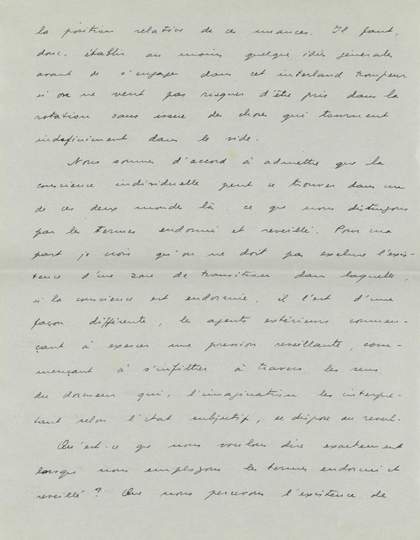 la position relative de ces nuances. Il faut,
donc, établir au moins quelque idée générale
avant de s'engager dans cet interland trompeur
si on ne veut pas risquer d'être pris dans la
rotation sans essie de choses qui tournent
indéfiniment dans le vide.
Nous sommes d'accord à admettre que la
conscience individuelle peut se trouver dans un
de ces deux monde là ce que nous distinguons
par les termes endormi et reveillé. Pour ma
part je crois qu'on ne doit pas exclure l'exis-
tence d'une zone de transition dans laquelle,
si la conscience est endormie, il l'est d'une
façon différente, les agents extérieurs commen-
çant à exercer une pression reveillante, com-
mençant à s'infiltrer à travers les sens
du dormeur qui, l'imagination les interpré-
tant selon l'état subjectif, se dispose au reveil.
Qu'est-ce que nous voulons dire exactement
lorsque nous employons les termes endormi et
reveillé? Que nous percevons l'existence de